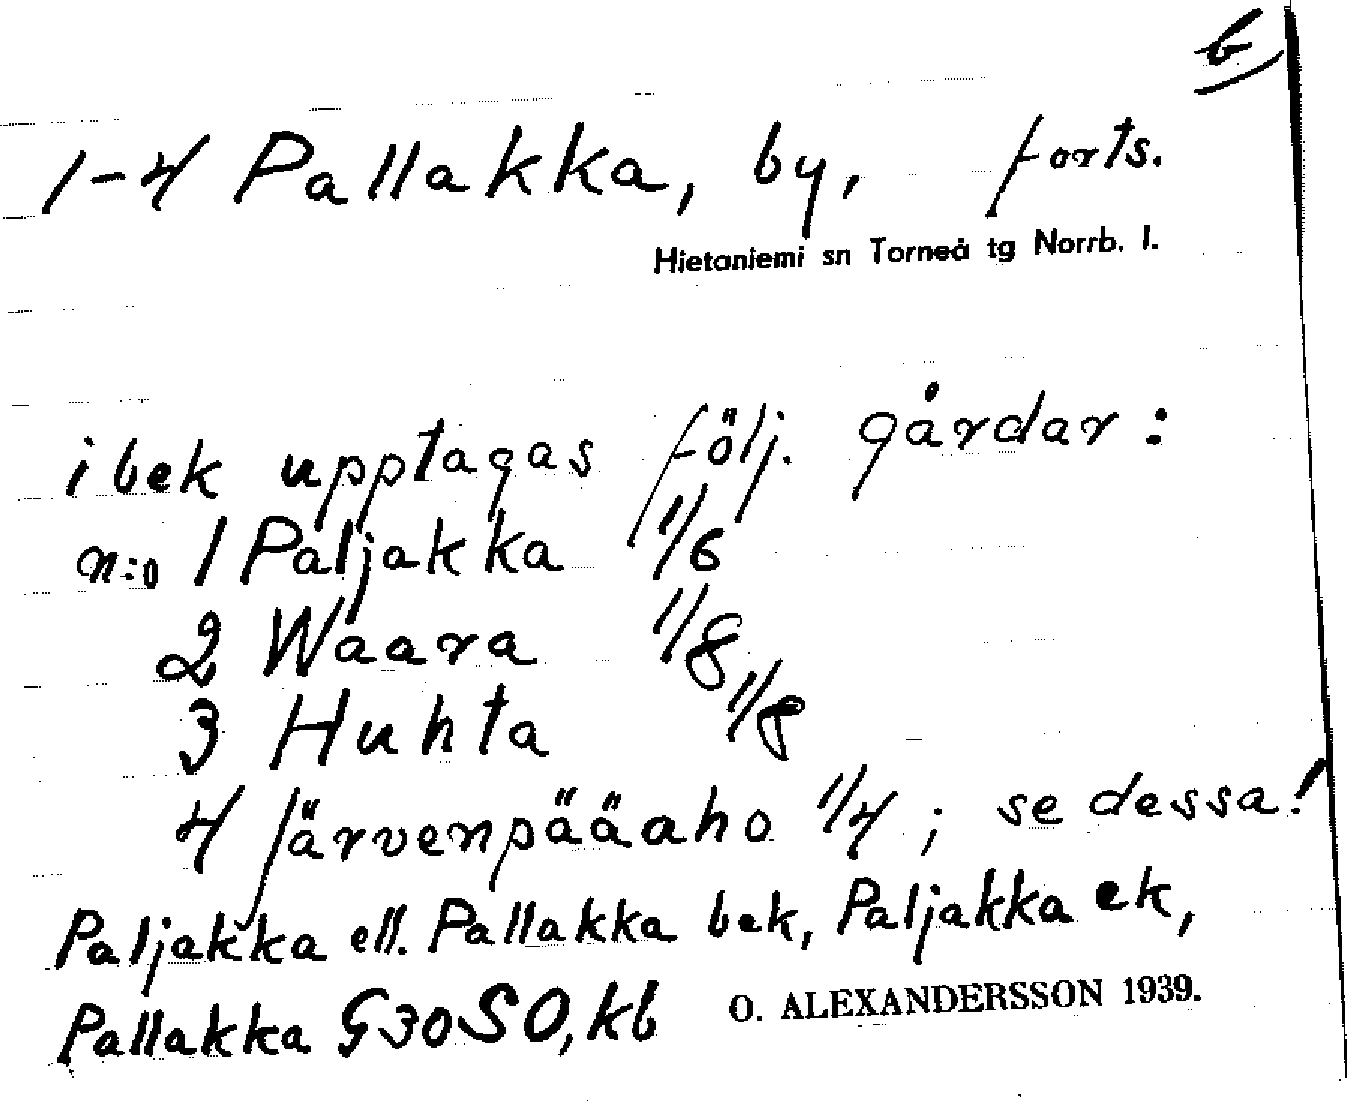 b
1-4 Pallakka, by, forts.
Hietaniemi sn Torneå tg Norrb. l.
i bek upptagas följ. gårdar:
n:o 1 Paljakka 1/6
2 Waara 1/8
3 Huhta 1/8
4 Järvenpääaho 1/4; se dessa!
Paljakka ell. Pallakka bek, Paljakka ek,
Pallakka G30SO, kb
O. ALEXANDERSSON 1939.